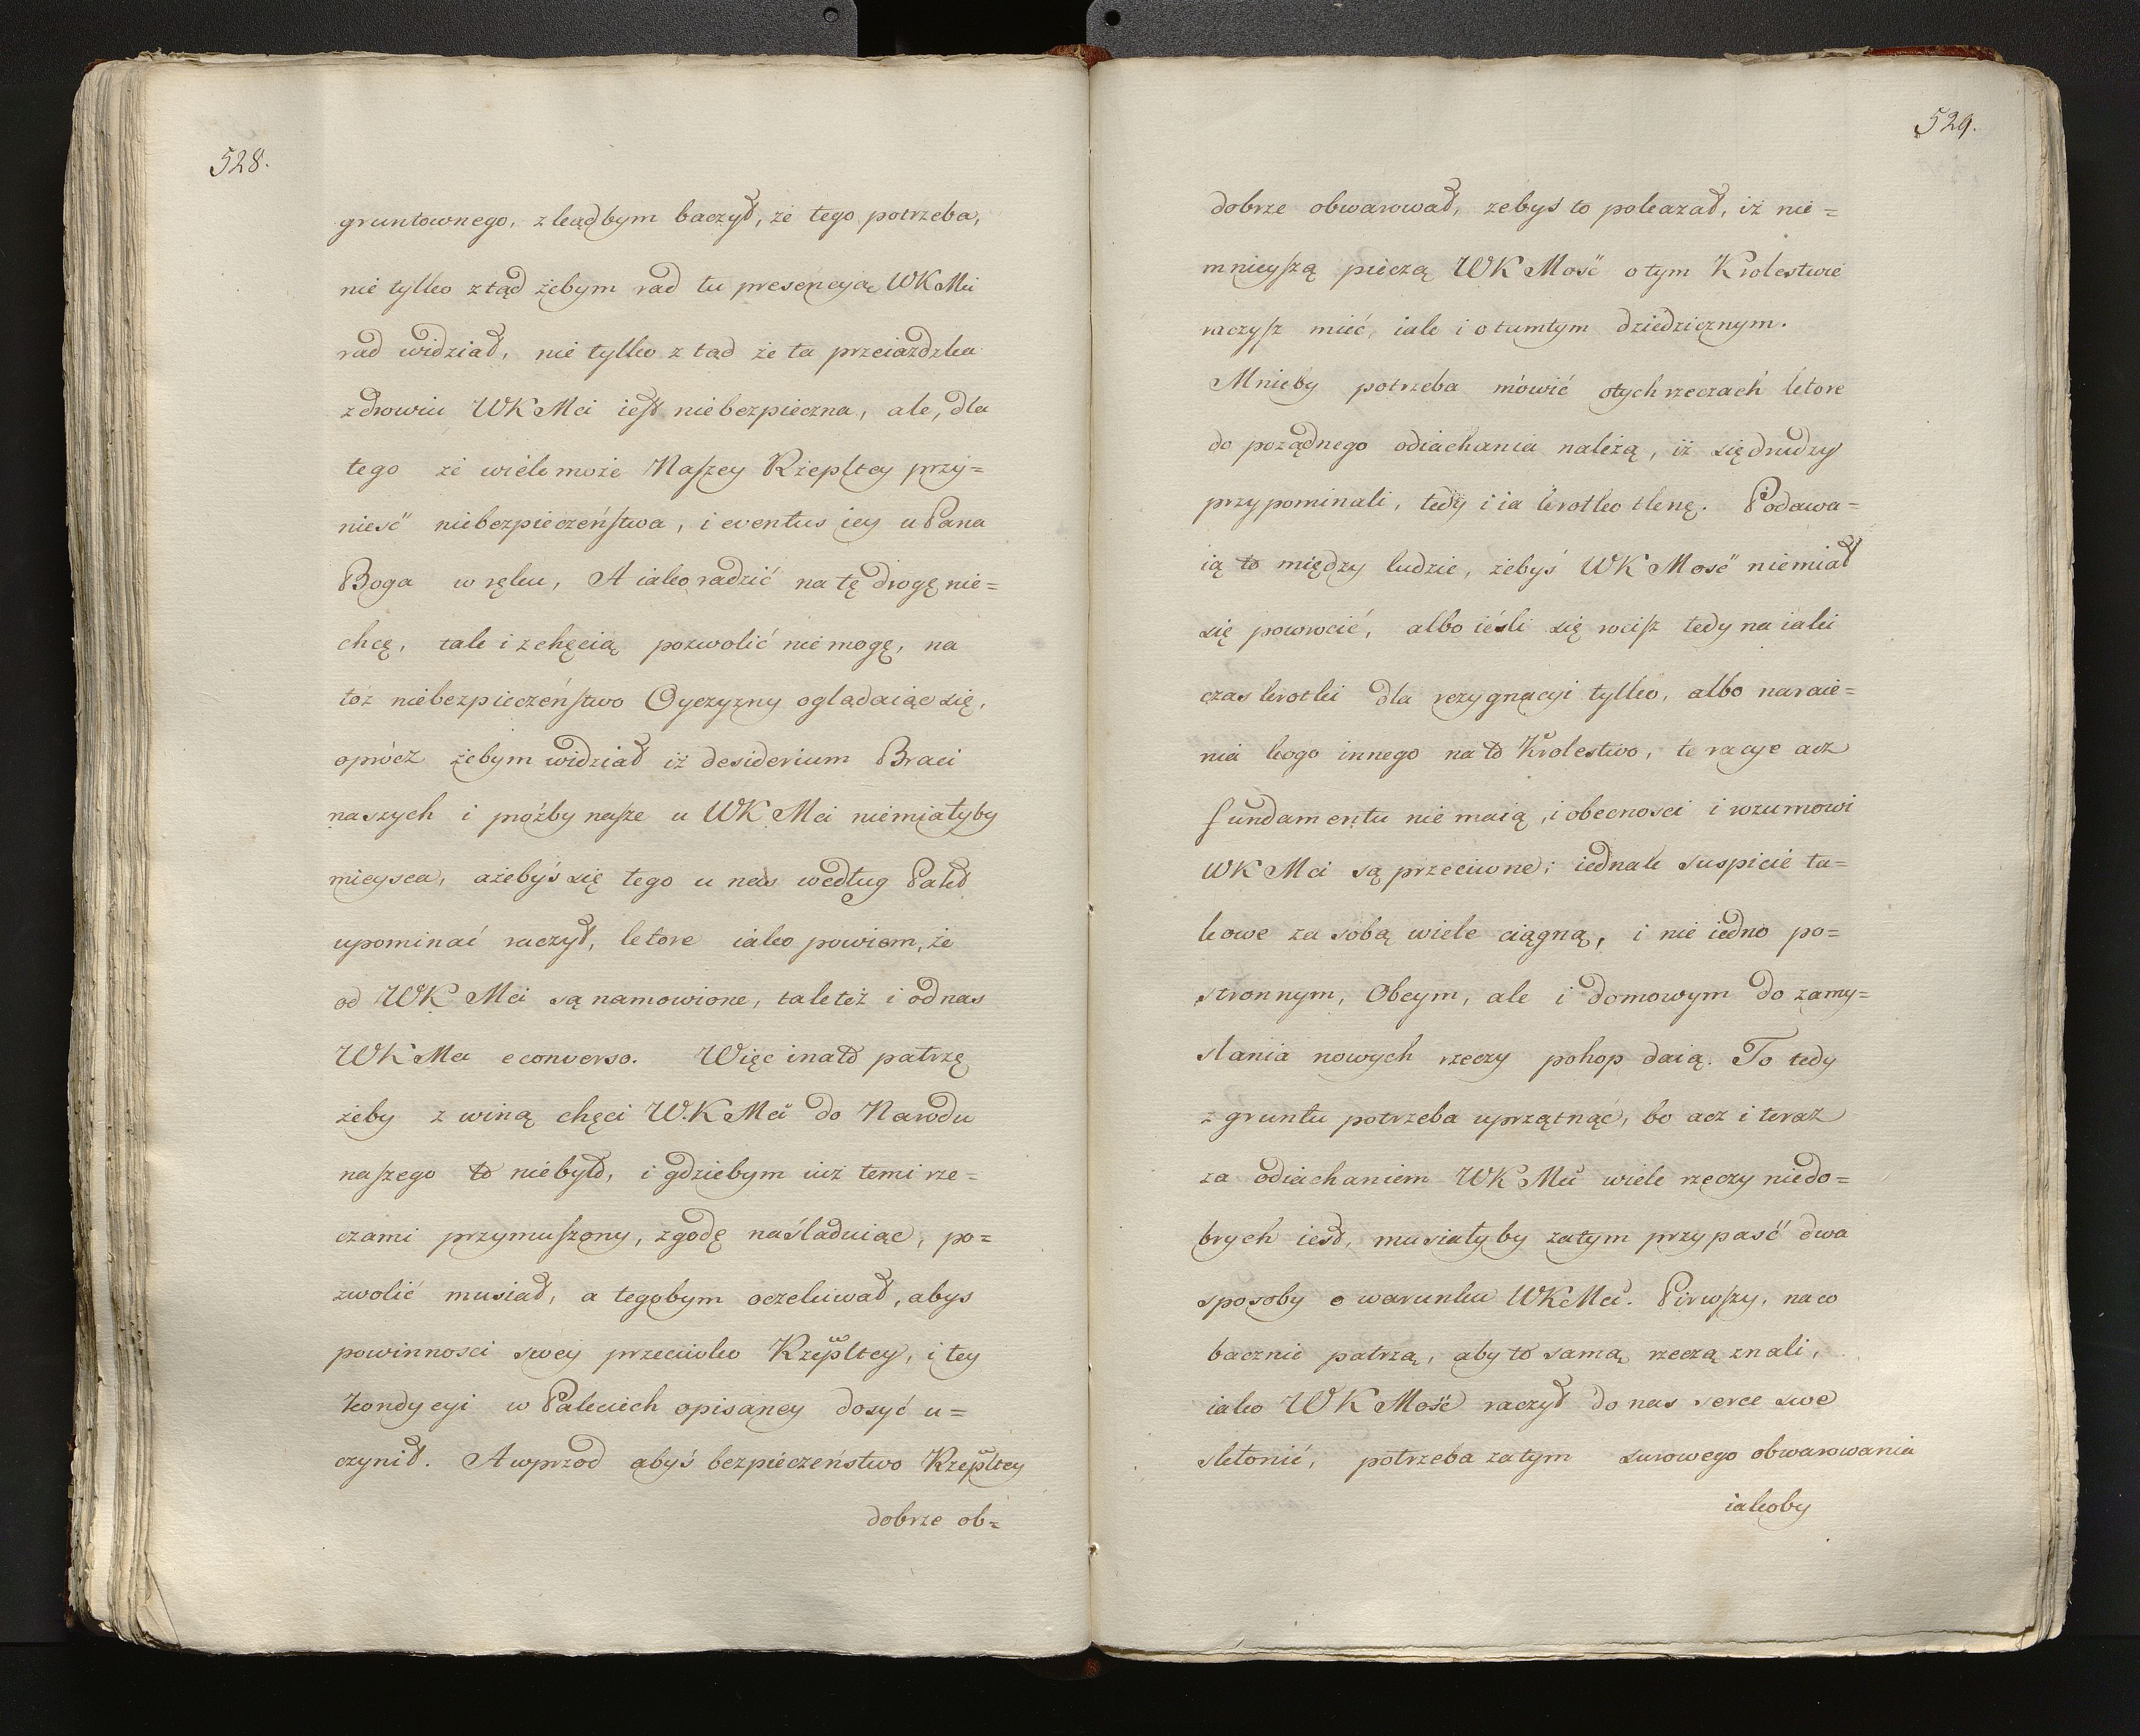 528.
gruntownego, zkądbym baczył, że tego potrzeba,
nie tylko ztąd żebym rad tu presencyą WKMci
rad widział, nie tylko z tąd że ta przeiazdzka
zdrowiu WKMci iest niebezpieczna, ale, dla
tego że wiele może Naszey Rzepltey przy=
nieść niebezpieczeństwa, i eventus iey u Pana
Boga w ręku, A iako radzić na tę drogę nie=
chcę, tak i z chęcią pozwolić nie mogę, na
toż niebezpieczeństwo Oyczyzny oglądaiąc się,
oprócz żebym widział iż desiderium Braci
naszych i proźby nasze u WK Mci niemiałyby
mieysca, ażebyś się tego u nas według Pakt
upominać raczył, ktore iako powiem, że
od WK Mci są namowione, tak też i od nas
WK Mci econverso. Więc i nato patrzę
żeby z winą chęci W.K Mci do Narodu
naszego to niebyło, i gdziebym iuż temi rze=
czami przymuszony, zgodę naśladuiąc, po=
zwolić musiał, a tegobym oczekiwał, abys
powinnosci swey przeciwko Rzepltey, i tey
kondycyi w Paktiech opisaney dosyć u=
czynił. A wprzod abyś bezpieczeństwo Rzepltey
dobrze ob=
529.
dobrze obwarował, zebys to pokazał, iż nie=
mnieyszą pieczą WK Mość o tym Krolestwie
raczysz mieć, iak i o tamtym dziedzicznym.
Mnieby potrzeba mówić o tych rzeczach ktore
do poządnego odiachania należą, iż się drudzy
przypominali, tedy i ia krotko tknę. Podawa=
ią to między ludzie, żebyś WK Mość niemiał
się powrocić, albo ieśli się wrcisz tedy na iaki
czas krotki dla rezygnacyi tylko, albo naraie=
nia kogo innego na to Krolestwo, te racye acz
fundamentu nie maią, i obecnosci i rozumowi
WK Mci są przeciwne; iednak suspicie ta=
kowe za sobą wiele ciągną, i nie iedno po=
stronnym, Obcym, ale i domowym do zamy=
slania nowych rzeczy pohop daią. To tedy
z gruntu potrzeba uprzątnąć, bo acz i teraz
za odiachaniem WK Mci wiele rzeczy niedo=
brych iest, musiałyby zatym przypaść dwa
sposoby o warunku WKMci. Pirwszy, na co
bacznie patrzą, aby to samą rzeczą znali,
iako WK Mość raczył do nas serce swe
skłonić, potrzeba zatym surowego obwarowania
iakoby